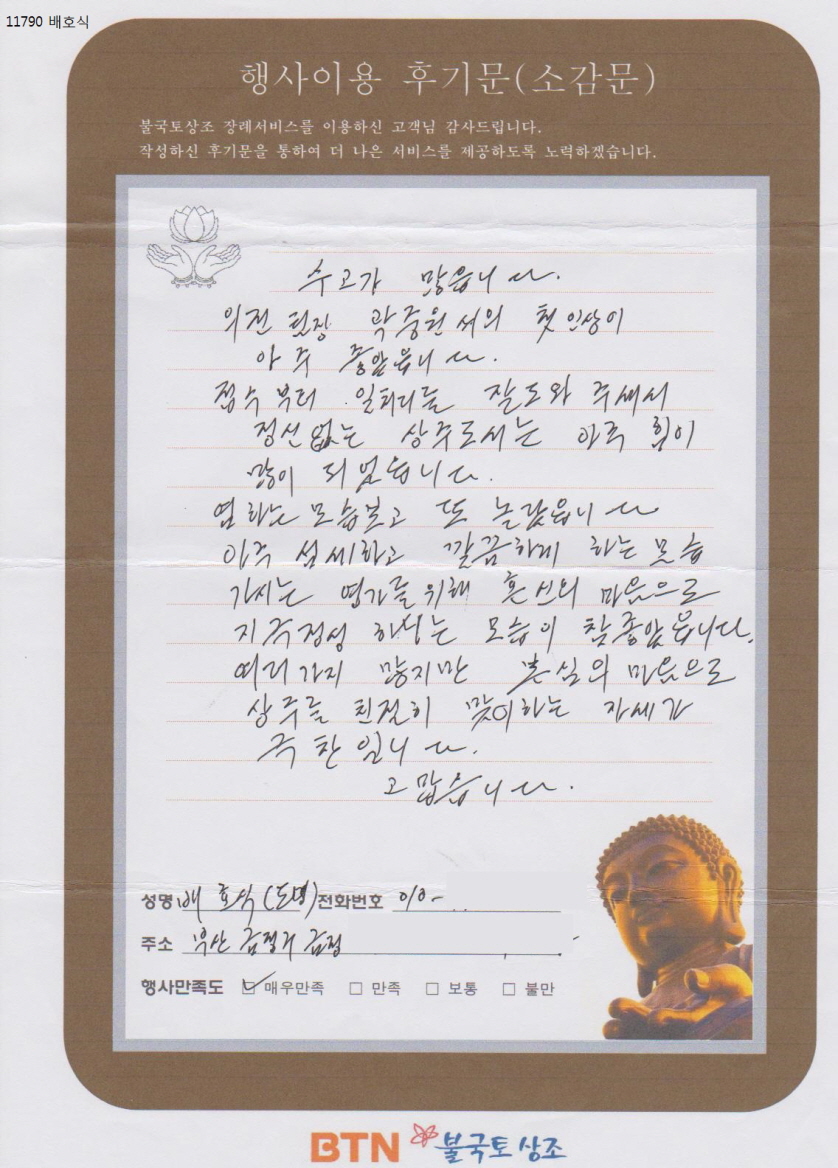 11790 배호식
행사이용 후기문(소감문)
불국토상조 장례서비스를 이용하신 고객님 감사드립니다.
작성하신 후기문을 통하여 더 나은 서비스를 제공하도록 노력하겠습니다.
수고가 많읍니다.
의전 팀장 곽중원씨의 첫인상이
아주 좋았읍니다.
접수부터 일처리등 잘도와 주셔서
정신없는 상주로서는 아주 힘이
많이 되었읍니다.
염하는 모습보고 또 놀랐읍니다
아주 섬세하고 깔끔하게 하는 모습
가시는 영가를위해 혼신의 마음으로
지극정성 하시는 모습이 참좋았읍니다.
여러가지 많지만 혼실의 마음으로
상주를 친절히 맞이하는 자세가
극찬입니다.
고맙습니다.
성명 배호식(도명) 전화번호 010-
주소 부산 금정구 금정
행사만족도 ☑ 매우만족 □ 만족 □ 보통 □ 불만
BTN 불국토상조